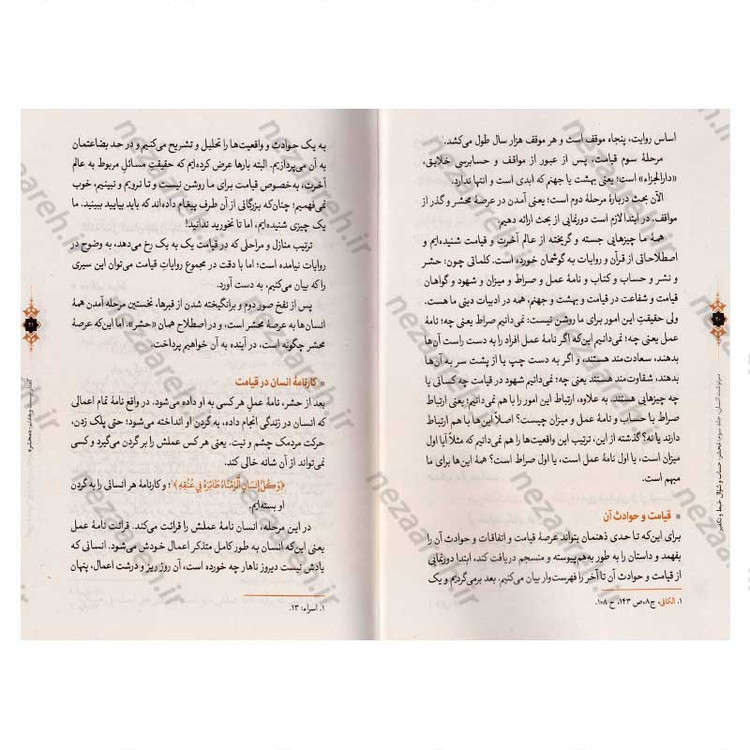 اساس روایت، پنجاه موقف است و هر موقف هزار سال طول می‌کشد.
مرحلهٔ سوم قیامت، پس از عبور از مواقف و حسابرسی خلایق،
«دارالجزاء» است؛ یعنی بهشت یا جهنم که ابدی است و انتها ندارد.
الآن بحث دربارهٔ مرحلهٔ دوم است؛ یعنی آمدن در عرصهٔ محشر و گذر از
مواقف، در ابتدا لازم است دورنمایی از بحث ارائه دهیم.
همهٔ ما چیزهایی جسته و گریخته از عالم آخرت و قیامت شنیده‌ایم و
اصطلاحاتی از قرآن و روایات به گوشمان خورده است. کلماتی چون: حشر
و نشر و حساب و کتاب و نامهٔ عمل و صراط و میزان و شهود و گواهان
قیامت و شفاعت در قیامت و بهشت و جهنم، همه در ادبیات دینی ما هست.
ولی حقیقت این امور برای ما روشن نیست: نمی‌دانیم صراط یعنی چه؛ نامهٔ
عمل یعنی چه؛ نمی‌دانیم این‌که اگر نامهٔ عمل افراد را به دست راست آن‌ها
بدهند، سعادت‌مند هستند، و اگر به دست چپ یا از پشت سر به آن‌ها
بدهند، شقاوت‌مند هستند یعنی چه؛ نمی‌دانیم شهود در قیامت چه کسانی یا
چه چیزهایی هستند. به علاوه، ارتباط این امور را با هم نمی‌دانیم؛ یعنی ارتباط
صراط با حساب و نامهٔ عمل و میزان چیست؟ اصلاً این‌ها با هم ارتباط
دارند یا نه؟ گذشته از این، ترتیب این واقعیت‌ها را هم نمی‌دانیم که مثلاً آیا اول
میزان است، یا اول نامهٔ عمل است، یا اول صراط است؟ همهٔ این‌ها برای ما
مبهم است.
قیامت و حوادث آن
برای این‌که تا حدی ذهنمان بتواند عرصهٔ قیامت و اتفاقات و حوادث آن را
بفهمد و داستان را به طور به‌هم‌پیوسته و منسجم دریافت کند، ابتدا دورنمایی
از قیامت و حوادث آن تا آخر را فهرست‌وار بیان می‌کنیم. بعد برمی‌گردیم و یک
۱. الکافی، ج۸، ص ۱۴۳، ح ۱۰۸.
۲۰
به یک حوادث و واقعیت‌ها را تحلیل و تشریح می‌کنیم و در حد بضاعتمان
به آن می‌پردازیم. البته بارها عرض کرده‌ایم که حقیقت مسائل مربوط به عالم
آخرت، به‌خصوص قیامت برای ما روشن نیست و تا نرویم و نبینیم، خوب
نمی‌فهمیم؛ چنان‌که بزرگانی از آن طرف پیغام داده‌اند که باید بیایید ببینید. ما
یک چیزی شنیده‌ایم، اما تا نخورید ندانید!
ترتیب منازل و مراحلی که در قیامت یک به یک رخ می‌دهد، به وضوح در
روایات نیامده است؛ اما با دقت در مجموع روایات قیامت می‌توان این سیری
را که بیان می‌کنیم، به دست آورد.
پس از نفخ صور دوم و برانگیخته شدن از قبرها، نخستین مرحله آمدن همهٔ
انسان‌ها به عرصهٔ محشر است، و در اصطلاح همان «حشر». اما این‌که عرصهٔ
محشر چگونه است، در آینده به آن خواهیم پرداخت.
کارنامهٔ انسان در قیامت
بعد از حشر، نامهٔ عمل هر کسی به او داده می‌شود. در واقع نامهٔ تمام اعمالی
که انسان در زندگی انجام داده، به گردن او انداخته می‌شود؛ حتی پلک زدن،
حرکت مردمک چشم و نیت. یعنی هر کس عملش را بر گردن می‌گیرد و کسی
نمی‌تواند از آن شانه خالی کند.
﴿وَ كُلَّ إِنسانٍ أَلْزَمْناهُ طائِرَهُ فِي عُنُقِهِ﴾؛ و کارنامهٔ هر انسانی را به گردن
او بسته‌ایم.
در این مرحله، انسان نامهٔ عملش را قرائت می‌کند. قرائت نامهٔ عمل
یعنی این‌که انسان به طور کامل متذکر اعمال خودش می‌شود. انسانی که
یادش نیست دیروز ناهار چه خورده است، آن روز ریز و درشت اعمال، پنهان
۱. اسراء: ۱۳.
۲۱
nezaareh.ir